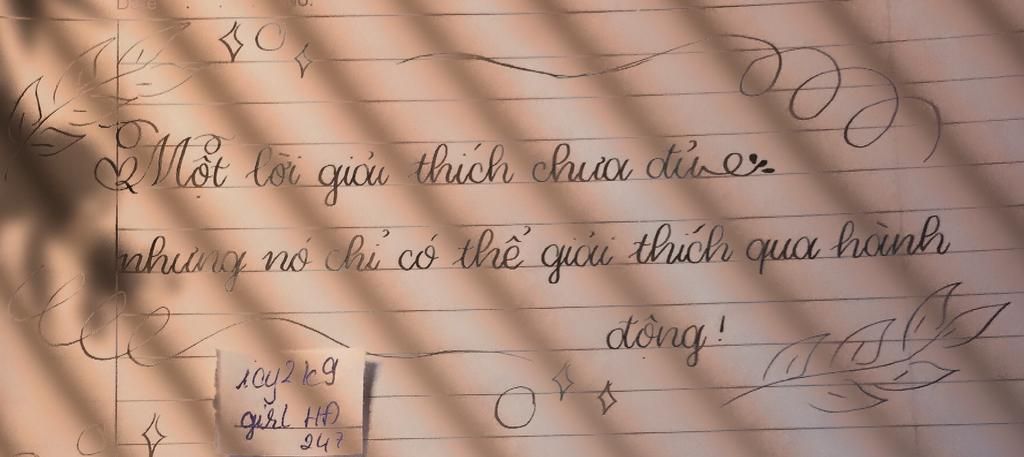 Date No.
Một lời giải thích chưa đủ
nhưng nó chỉ có thể giải thích qua hành
động!
icy2k9
girl HD
247